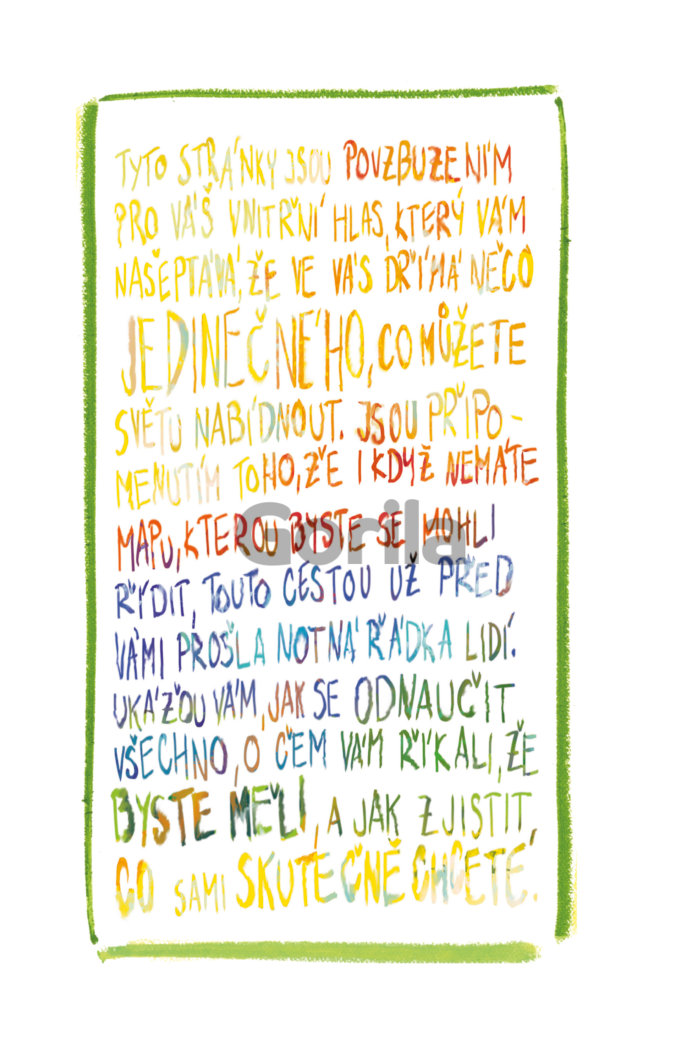 TYTO STRÁNKY JSOU POVZBUZENÍM
PRO VÁŠ VNITŘNÍ HLAS, KTERÝ VÁM
NAŠEPTÁVÁ, ŽE VE VÁS DŘÍMÁ NĚCO
JEDINEČNÉHO, CO MŮŽETE
SVĚTU NABÍDNOUT. JSOU PŘIPO-
MENUTÍM TOHO, ŽE I KDYŽ NEMÁTE
MAPU, KTEROU BYSTE SE MOHLI
Gorila
ŘÍDIT, TOUTO CESTOU UŽ PŘED
VÁMI PROŠLA NOTNÁ ŘÁDKA LIDÍ.
UKÁŽOU VÁM, JAK SE ODNAUČIT
VŠECHNO, O ČEM VÁM ŘÍKALI, ŽE
BYSTE MĚLI, A JAK ZJISTIT,
CO SAMI SKUTEČNĚ CHCETE.